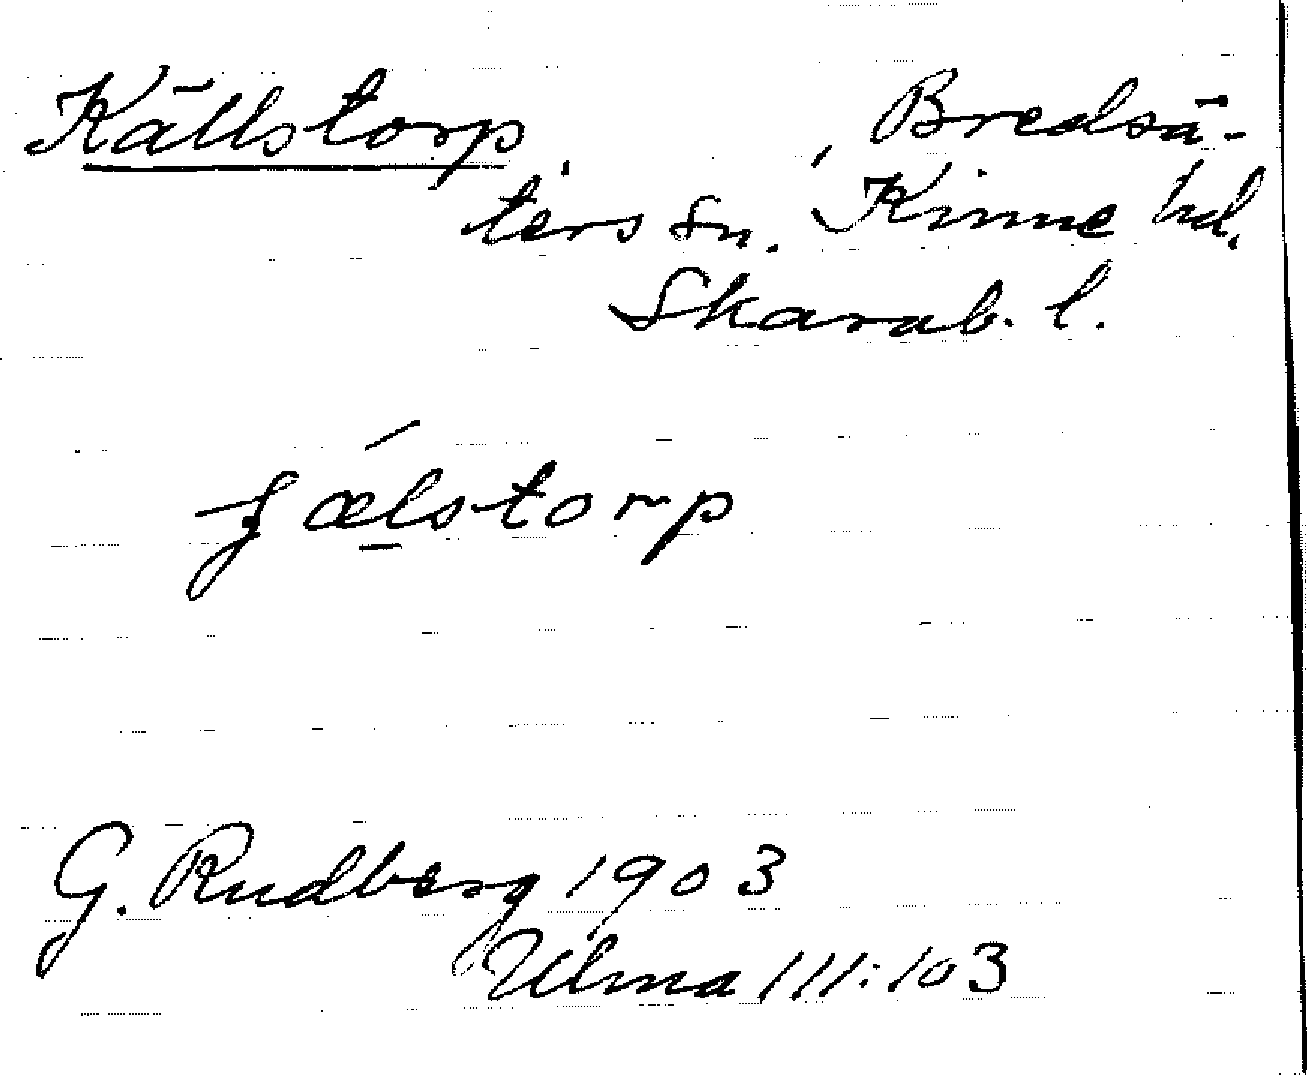 Källstorp, Bredsä-
ters sn. Kinne hd.
Skarab. l.
ɟælstorp
G. Rudberg 1903
Ulma 111:103